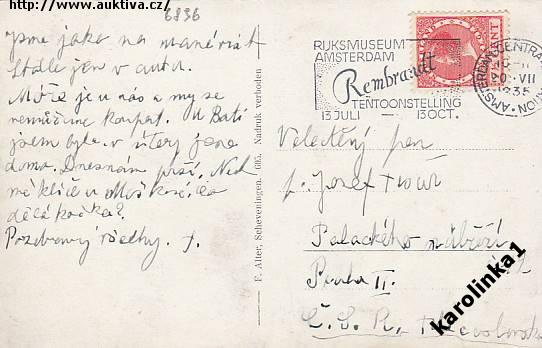 http://www.auktiva.cz/
6836
jsme jako na manévrách
stále jen v autu.
Moře je u nás a my se
nemůžeme koupat. U Bati
jsem byla v úterý jsme
doma. Dnes nám prší. Na
má klíče u
dělá kočka?
Pozdravuj všechny. J.
F. Alter, Scheveningen. 605. Nadruk verboden
RIJKSMUSEUM
AMSTERDAM
Rembrandt
TENTOONSTELLING
13 JULI — 13 OCT.
AMSTERDAM CENTRAAL STATION
20 VII
1935
Velectěný pan
p. Josef
Palackého nábřeží
Praha II.
Č. S. R.
karolinka1